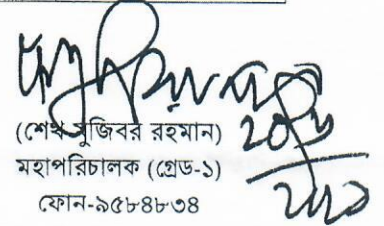 (শেখ মুজিবর রহমান)
মহাপরিচালক (গ্রেড-১)
ফোন-৯৫৮৪৮৩৪